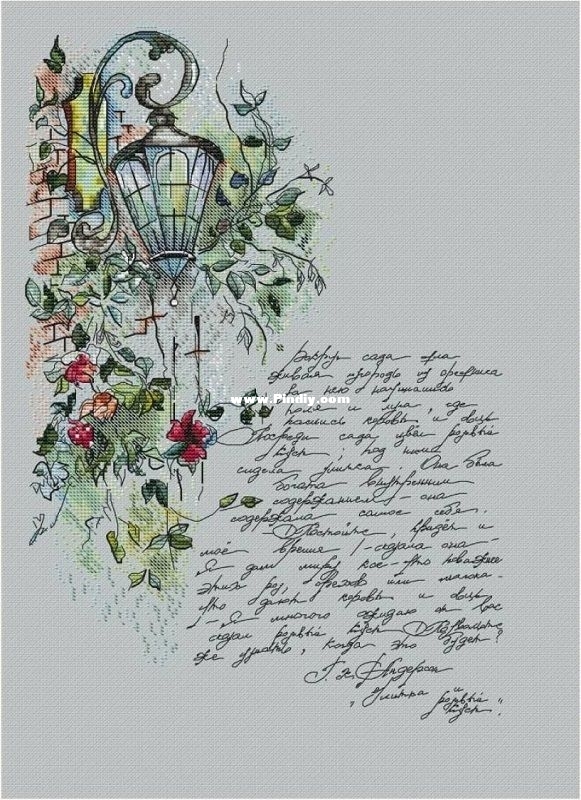 Вокруг сада шла
живая изгородь из орешника
за нею начинались
поля и луга, где
паслись коровы и овцы
www.Pindiy.com
Посреди сада цвёл розовый
куст; под ним
сидела улитка. Она была
богата внутренним
содержанием - она
содержала самое себя.
- Постойте, придёт и
моё время! - сказала она -
Я дам миру кое-что поважнее
этих роз, орехов или молока-
что дают коровы и овцы
! - Я многого ожидаю от вас
сказал розовый куст - Позвольте
же узнать, когда это будет?
Г. Х. Андерсен
„Улитка и
розовый
куст".